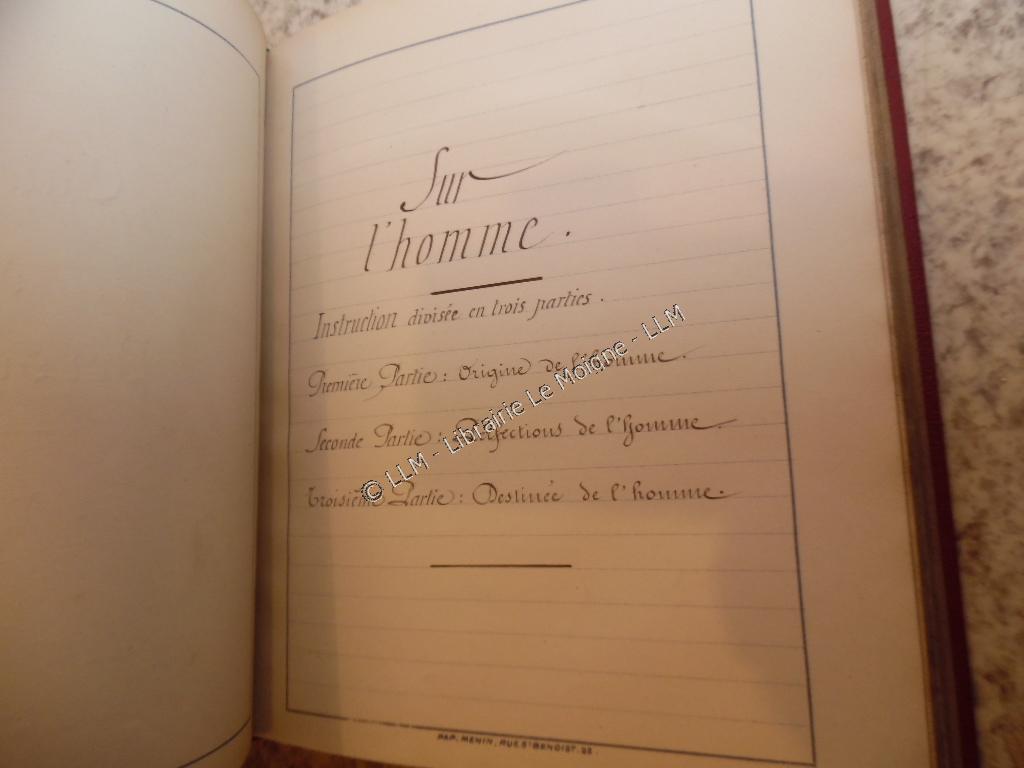 Sur
l'homme.
Instruction divisée en trois parties.
Première Partie : Origine de l'homme.
Seconde Partie : Perfections de l'homme.
Troisième Partie : Destinée de l'homme.
© LLM - Librairie Le Moine - LLM
PAP. MENIN, RUE ST BENOIST. 25.